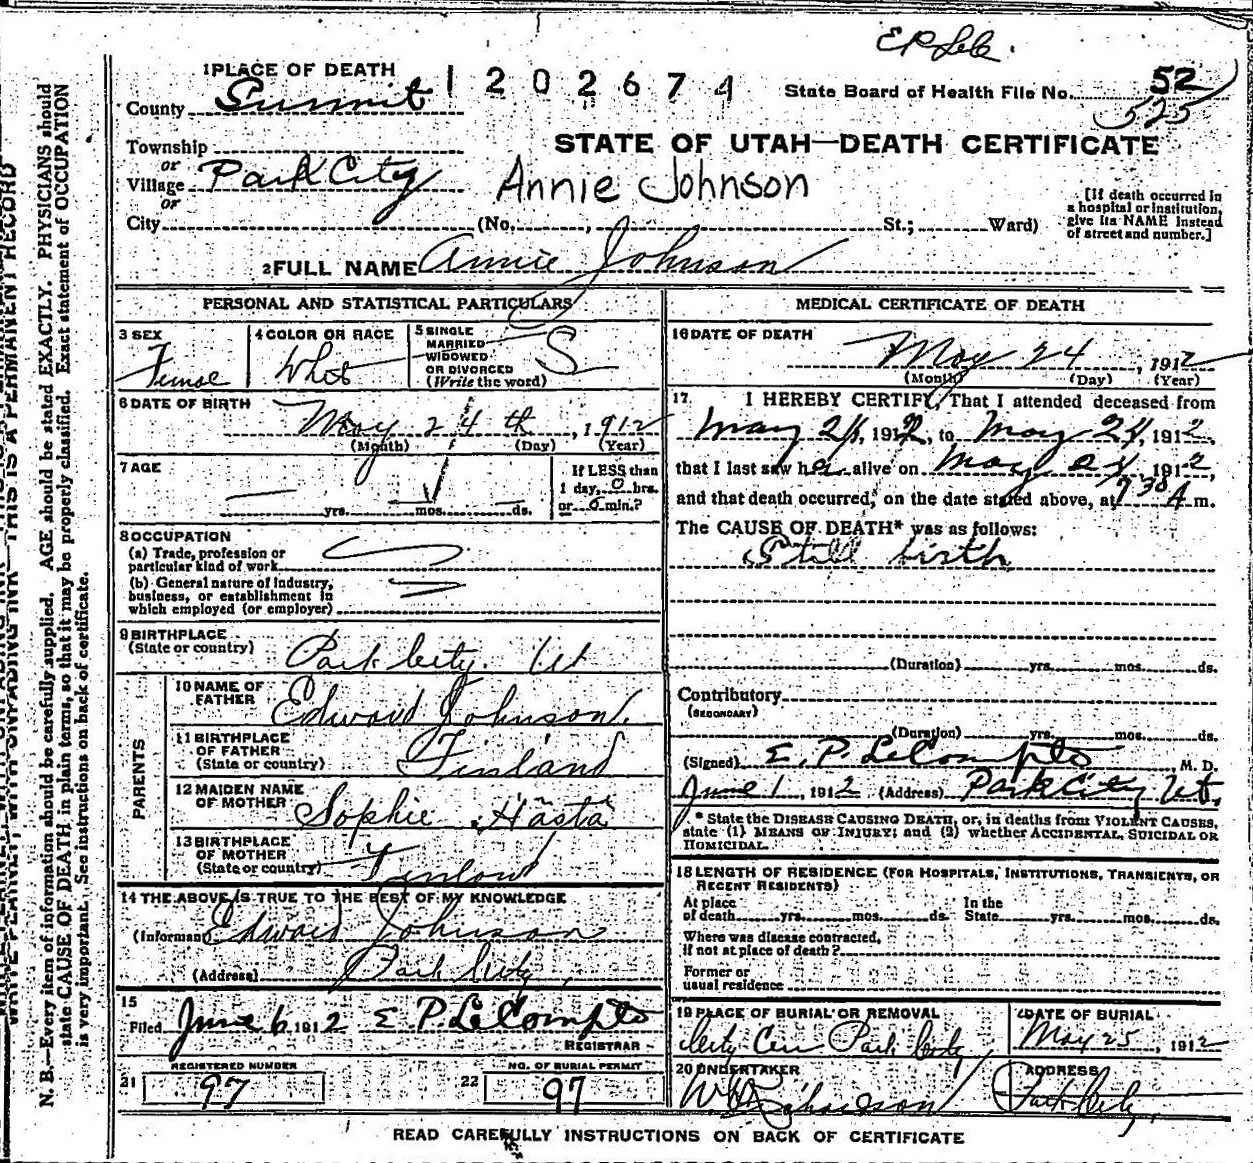 E P LeC.
1 PLACE OF DEATH
1202674
State Board of Health File No. 52
525
County Summit
STATE OF UTAH—DEATH CERTIFICATE
Township
or
Village Park City
Annie Johnson
or
City (No. , St.; Ward)
[If death occurred in
a hospital or institution,
give its NAME instead
of street and number.]
2 FULL NAME Annie Johnson
PERSONAL AND STATISTICAL PARTICULARS
3 SEX
Female
4 COLOR OR RACE
White
5 SINGLE
MARRIED
WIDOWED
OR DIVORCED
(Write the word)
S
6 DATE OF BIRTH
May 24th, 1912
(Month) (Day) (Year)
7 AGE
yrs. mos. ds.
If LESS than
1 day, 0 hrs.
or 0 min.?
8 OCCUPATION
(a) Trade, profession or
particular kind of work
(b) General nature of industry,
business, or establishment in
which employed (or employer)
9 BIRTHPLACE
(State or country)
Park City. Ut
PARENTS
10 NAME OF
FATHER
Edward Johnson.
11 BIRTHPLACE
OF FATHER
(State or country)
Finland
12 MAIDEN NAME
OF MOTHER
Sophie Hästä
13 BIRTHPLACE
OF MOTHER
(State or country)
Finland
14 THE ABOVE IS TRUE TO THE BEST OF MY KNOWLEDGE
(Informant) Edward Johnson
(Address) Park City,
15
Filed June 6, 1912 E. P. LeCompte
REGISTRAR
REGISTERED NUMBER
21 97
NO. OF BURIAL PERMIT
22 97
MEDICAL CERTIFICATE OF DEATH
16 DATE OF DEATH
May 24, 1912
(Month) (Day) (Year)
17 I HEREBY CERTIFY, That I attended deceased from
May 24, 1912, to May 24, 1912,
that I last saw her alive on May 24, 1912,
and that death occurred, on the date stated above, at 7 30 A m.
The CAUSE OF DEATH* was as follows:
Still birth
(Duration) yrs. mos. ds.
Contributory
(SECONDARY)
(Duration) yrs. mos. ds.
(Signed) E. P. LeCompte, M. D.
June 1, 1912 (Address) Park City Ut.
* State the DISEASE CAUSING DEATH, or, in deaths from VIOLENT CAUSES,
state (1) MEANS OF INJURY; and (2) whether ACCIDENTAL, SUICIDAL OR
HOMICIDAL.
18 LENGTH OF RESIDENCE (FOR HOSPITALS, INSTITUTIONS, TRANSIENTS, OR
RECENT RESIDENTS)
At place
of death yrs. mos. ds.
In the
State yrs. mos. ds.
Where was disease contracted,
if not at place of death?
Former or
usual residence
19 PLACE OF BURIAL OR REMOVAL
City Cem Park City
DATE OF BURIAL
May 25, 1912
20 UNDERTAKER
Richardson
ADDRESS
Park City.
READ CAREFULLY INSTRUCTIONS ON BACK OF CERTIFICATE
THIS IS A PERMANENT RECORD
N. B.—Every item of information should be carefully supplied. AGE should be stated EXACTLY. PHYSICIANS should
state CAUSE OF DEATH in plain terms, so that it may be properly classified. Exact statement of OCCUPATION
is very important. See instructions on back of certificate.